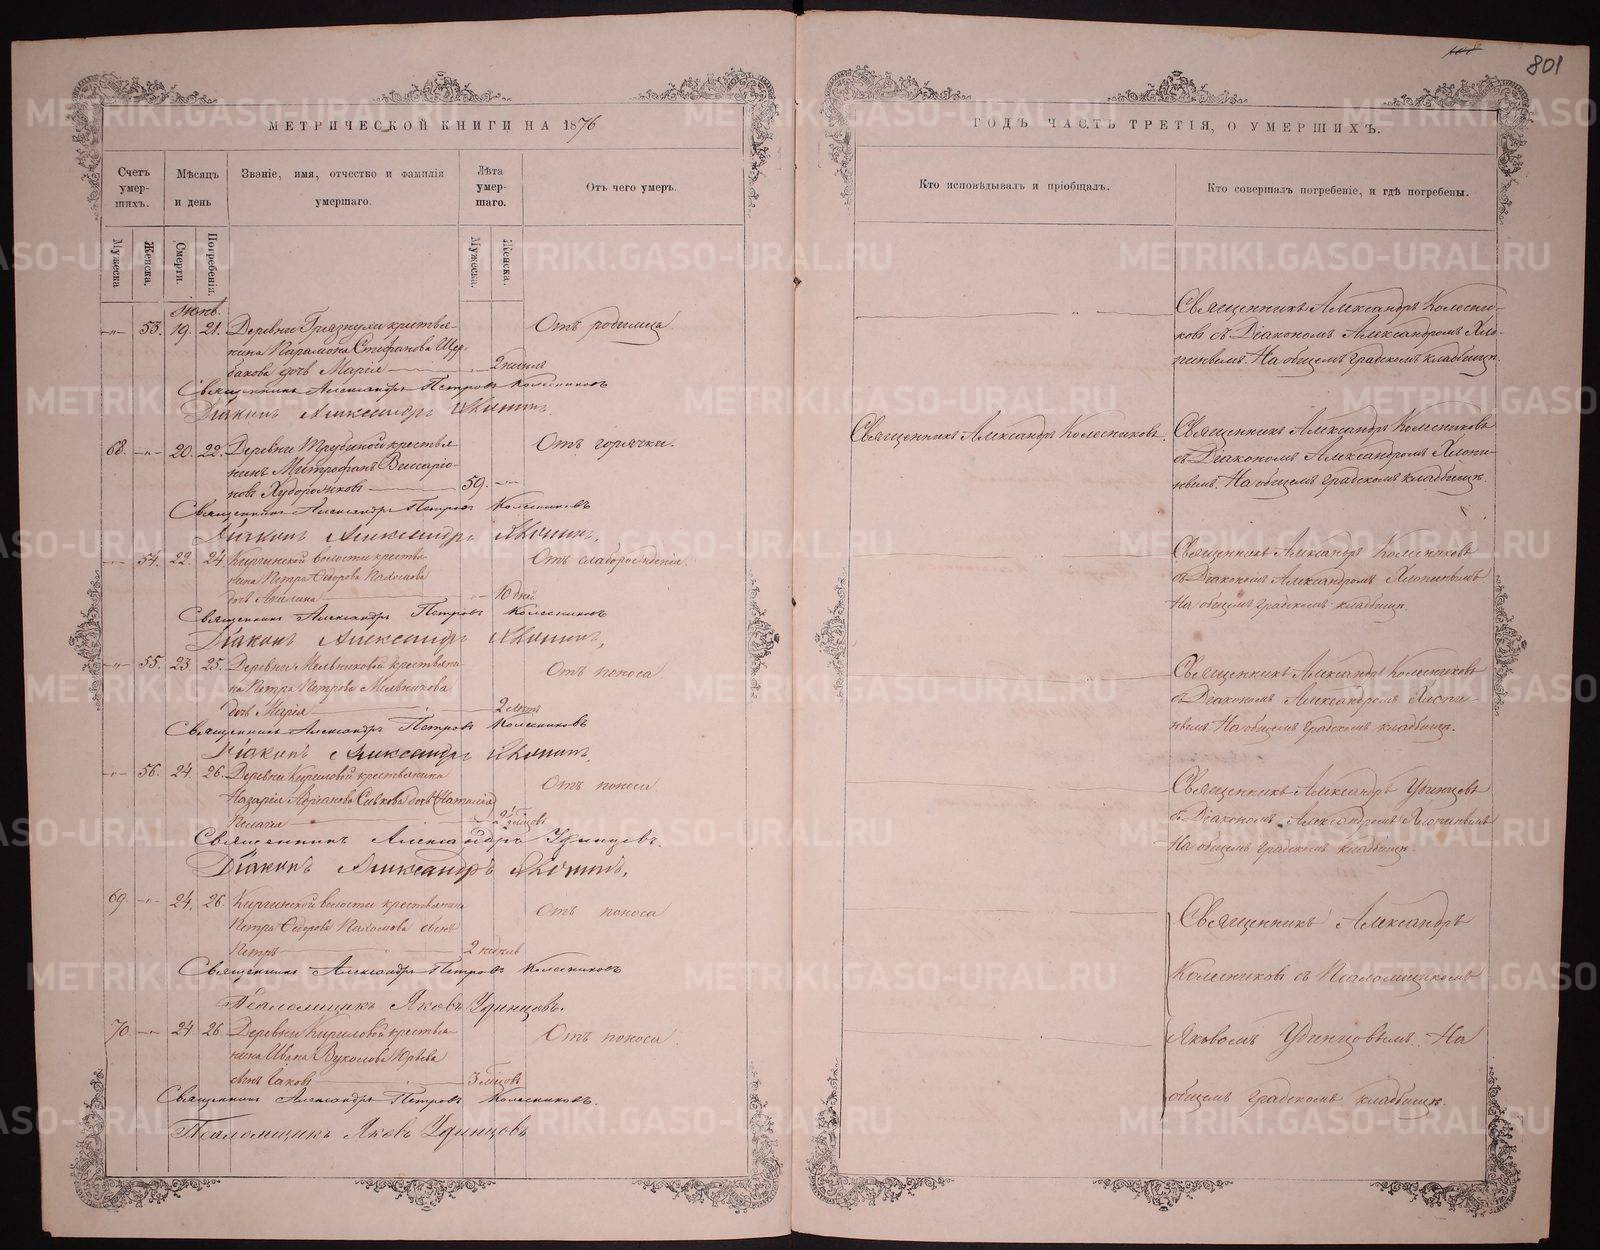 801
МЕТРИЧЕСКОЙ КНИГИ НА 1876
ГОДЪ ЧАСТЬ ТРЕТІЯ, О УМЕРШИХЪ.
Счетъ умер-шихъ.
Мѣсяцъ и день
Званіе, имя, отчество и фамилія умершаго.
Лѣта умер-шаго.
Отъ чего умеръ.
Кто исповѣдывалъ и пріобщалъ.
Кто совершалъ погребеніе, и гдѣ погребены.
Мужеска
Женска.
Смерти.
Погребенія.
Мужеска.
Женска.
53. 19. 21. Деревни Грязнухи крестья-
нина Парамона Стефанова Щер-
бакова дочь Марія 2 недѣли
Отъ родимца
Священникъ Александръ Колесни-
ковъ съ Діакономъ Александромъ Хло-
пинымъ. На общемъ градскомъ кладбищѣ.
Священникъ Александръ Петровъ Колесниковъ
Діаконъ Александръ
68. 20. 22. Деревни Трубиной крестья-
нинъ Митрофанъ Виссаріо-
новъ Худорожковъ 59.
Отъ горячки.
Священникъ Александръ Колесниковъ.
Священникъ Александръ Колесниковъ
съ Діакономъ Александромъ Хлопи-
нымъ. На общемъ градскомъ кладбищѣ.
Священникъ Александръ Петровъ Колесниковъ
Діаконъ Александръ
54. 22. 24. Киргинской волости крестья-
нина Петра Ѳедорова Пахомова
дочь 10 дней
Отъ слаборожденія.
Священникъ Александръ Колесниковъ
съ Діакономъ Александромъ Хлопинымъ
На общемъ градскомъ кладбищѣ.
Священникъ Александръ Петровъ Колесниковъ
Діаконъ Александръ
55. 23. 25. Деревни Мельниковой крестьяни-
на Петра Петрова Мельникова
дочь Марія 2 лѣтъ
Отъ поноса
Священникъ Александръ Колесниковъ
съ Діакономъ Александромъ Хлопи-
нымъ На общемъ градскомъ кладбищѣ.
Священникъ Александръ Петровъ Колесниковъ
Діаконъ Александръ
56. 24. 26. Деревни Кириловой крестьянина
Назарія Адріанова дочь (Наталія)
Пелагія 2½ мѣсцовъ
Отъ поноса
Священникъ Александръ Удинцовъ
съ Діакономъ Александромъ Хлопинымъ
На общемъ градскомъ кладбищѣ.
Священникъ Александръ Удинцевъ.
Діаконъ Александръ
69. 24. 26. Киргинской волости крестьянина
Петра Ѳедорова Пахомова сынъ
Петръ 2 недѣль
Отъ поноса
Священникъ Александръ
Колесниковъ съ Псаломщикомъ
Священникъ Александръ Петровъ Колесниковъ
Псаломщикъ Яковъ Удинцовъ.
70. 24 26. Деревни Кириловой крестья-
нина Ивана Вуколова Юрьева
сынъ Іаковъ 3 мѣсцовъ
Отъ поноса
Яковомъ Удинцовымъ. На
общемъ градскомъ кладбищѣ.
Священникъ Александръ Петровъ Колесниковъ.
Псаломщикъ Яковъ Удинцовъ
METRIKI.GASO-URAL.RU